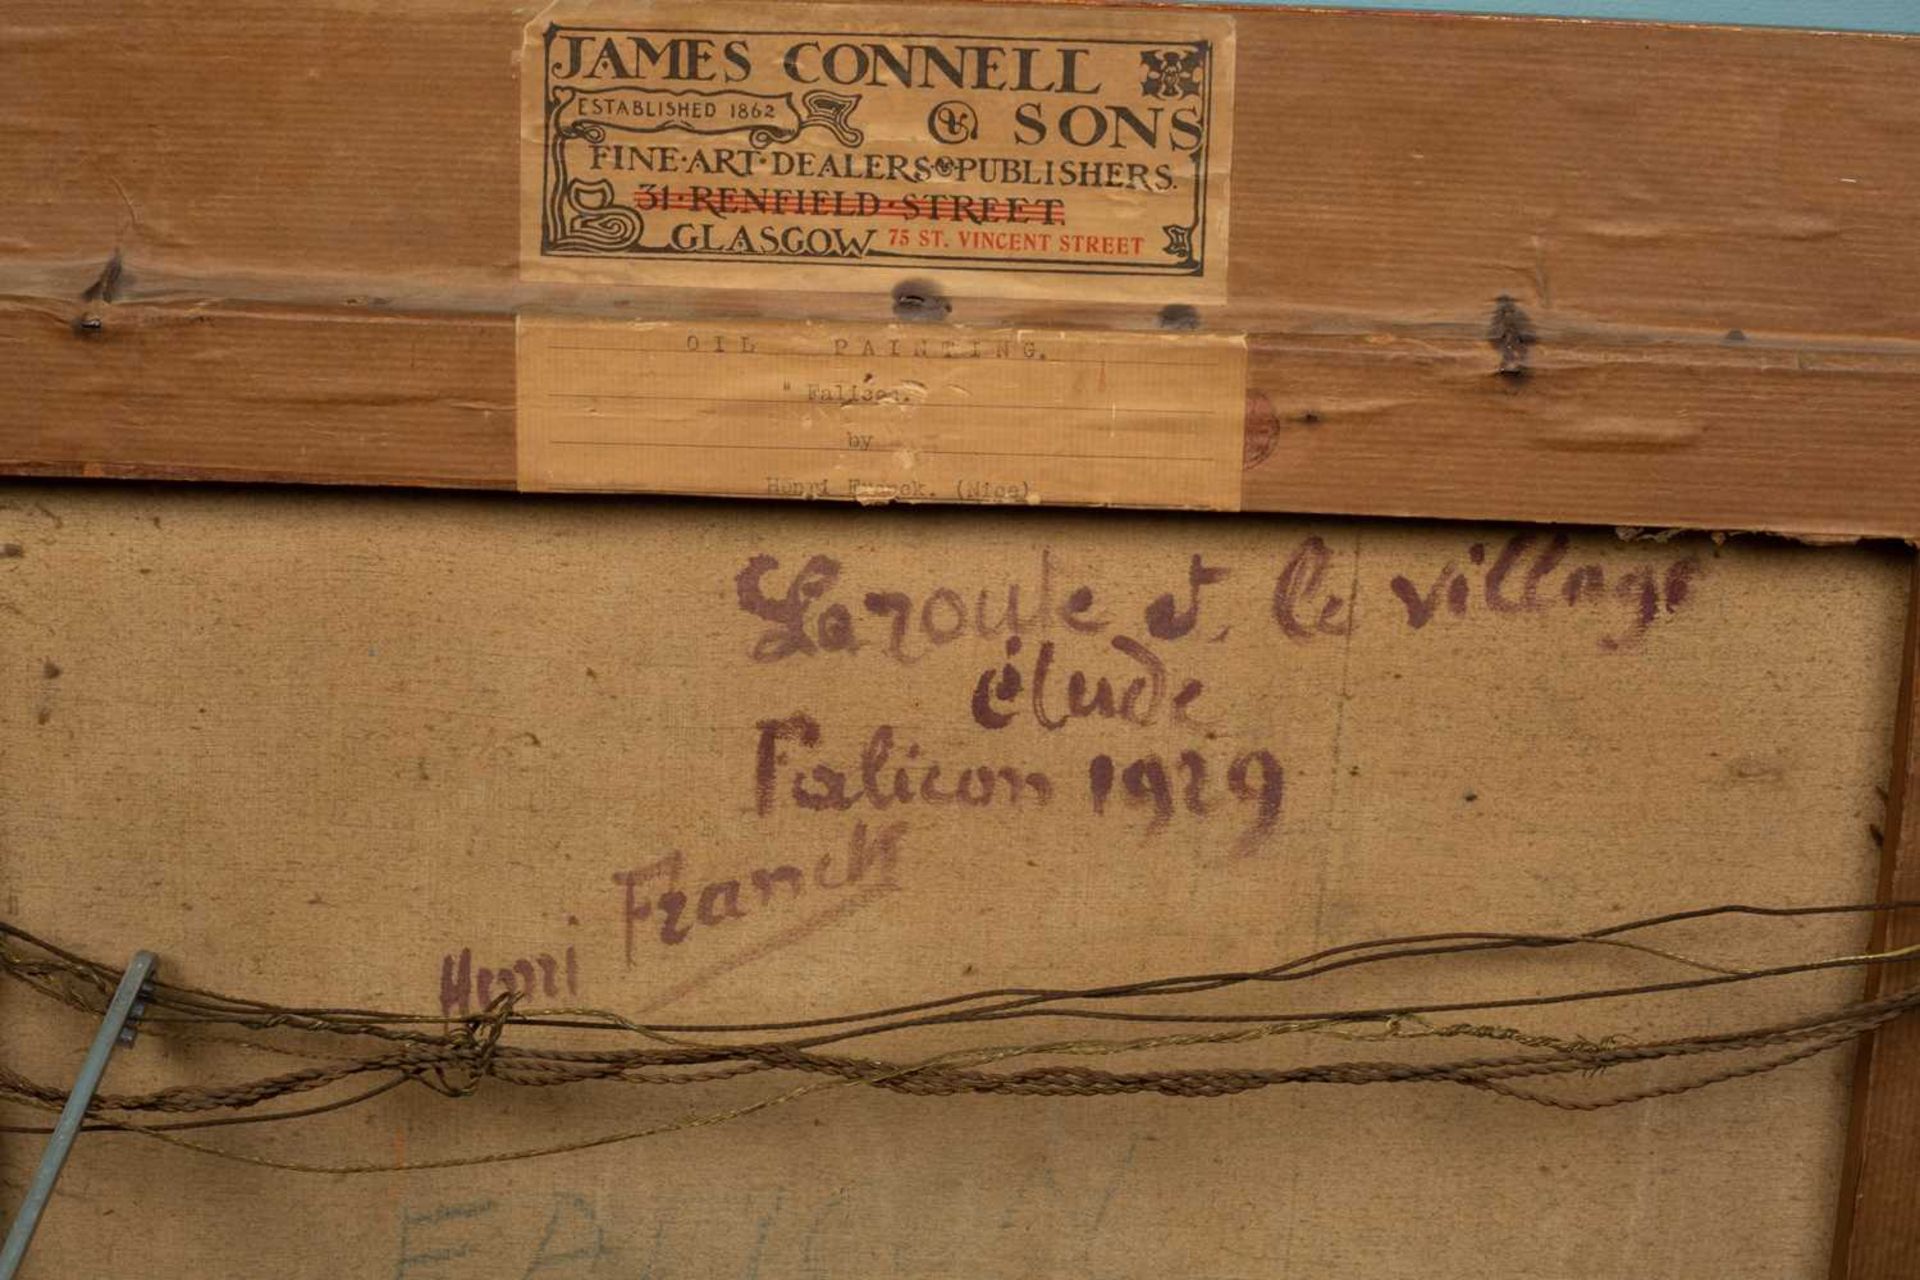 JAMES CONNELL
ESTABLISHED 1862
& SONS
FINE·ART·DEALERS & PUBLISHERS.
31·RENFIELD·STREET.
GLASGOW 75 ST. VINCENT STREET
OIL PAINTING.
" Falicon.
by
Henri Franck. (Nice)
La route et le village
étude
Falicon 1929
Henri Franck
FALICON